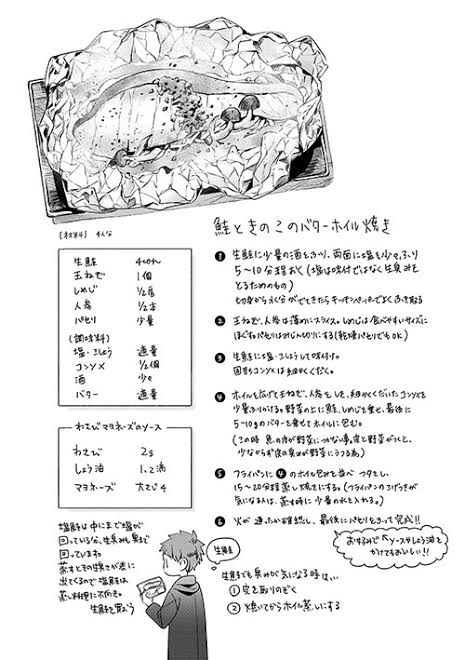 鮭ときのこのバターホイル焼き
[材料] 4人分
生鮭 4切れ
玉ねぎ 1個
しめじ 1/2房
人参 1/2本
パセリ 少量
(調味料)
塩・こしょう 適量
コンソメ 1/2個
酒 少々
バター 適量
わさびマヨネーズのソース
わさび 2g
しょう油 1、2滴
マヨネーズ 大さじ4
1 生鮭に少量の酒をふり、両面に塩を少々ふり
5〜10分程おく(塩は味付ではなく生臭みを
とるためのもの)
切身から水分がでてきたらキッチンペーパーでよくふき取る
2 玉ねぎ、人参は薄めにスライス。しめじは食べやすいサイズに
ほぐす。パセリはみじん切りにする(乾燥パセリでもOK)
3 生鮭に塩・こしょうして味付け。
固形コンソメは細かくくだく。
4 ホイルを広げて玉ねぎ、人参をしき、細かくくだいたコンソメを
少量ふりかける。野菜の上に鮭、しめじを乗せ、最後に
5〜10gのバターを乗せてホイルに包む。
(この時 魚の皮が野菜につかない事。皮と野菜がつくと、
少なからず皮の臭みが野菜にうつる為)
5 フライパンに4のホイル包みを並べ フタをし、
15〜20分程蒸し焼きにする。(フライパンのこげつきが
気になる人は、蒸す時に少量の水を入れる。)
6 火が通ったか確認し、最後にパセリをふって完成!!
お好みで ソースやしょう油を
かけてもおいしい!!
塩鮭は中にまで塩が
回っている分、生臭みも奥まで
回っています。
蒸すとその臭さが表に
出てくるので塩鮭は
蒸し料理に不向き。
生鮭を買おう
生鮭
生鮭でも臭みが気になる時は、、、
① 皮を取りのぞく
② 焼いてからホイル蒸しにする